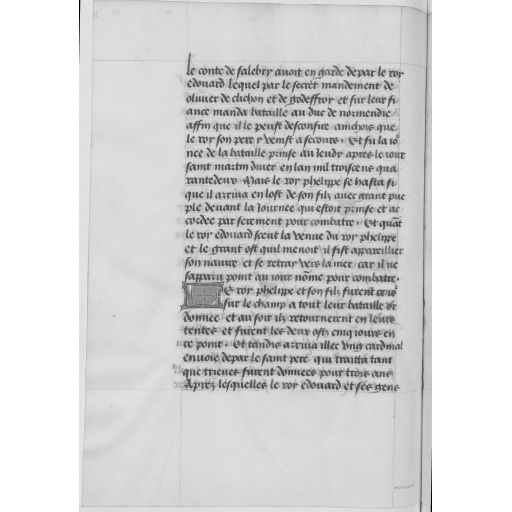 Le conte de salebry avoit en garde de par le roy
edouard lequel par le secret mandement de
olivier de clichon et de godeffroy et sur leur fi
ance manda bataille au duc de normendie
affin que il le peust desconfire ainchois que
le roy son pere y venist a secours. Et fu la io
nee de la bataille prinse au Jeudy apres le iour
saint martin diver en lan mil troiscens qua
rantedeux Mais le roy phelippe se hasta si
que il arriva en lost de son filz avec grant peu
ple devant la Journee qui estoit prinse et ac
cordee par serement pour combatre. Et quāt
le roy edouard sceut la venue du roy phelippe
et le grant ost quil menoit il fist appareillier
son navire et se retray vers la mer car il ne
saparu point au iour nōme pour combatre.
Le roy phelippe et son filz furent ce io
sur le champ a tout leur bataille or
donnee et au soir ilz retournerent en leurs
tentes et furent les deux ostz cinq iours en
ce point. Et tandis arriva illec ung cardinal
envoie de par le saint pere qui traitta tant
que trieves furent donnees pour trois ans
Aprez lesquelles le roy edouard et ses gens